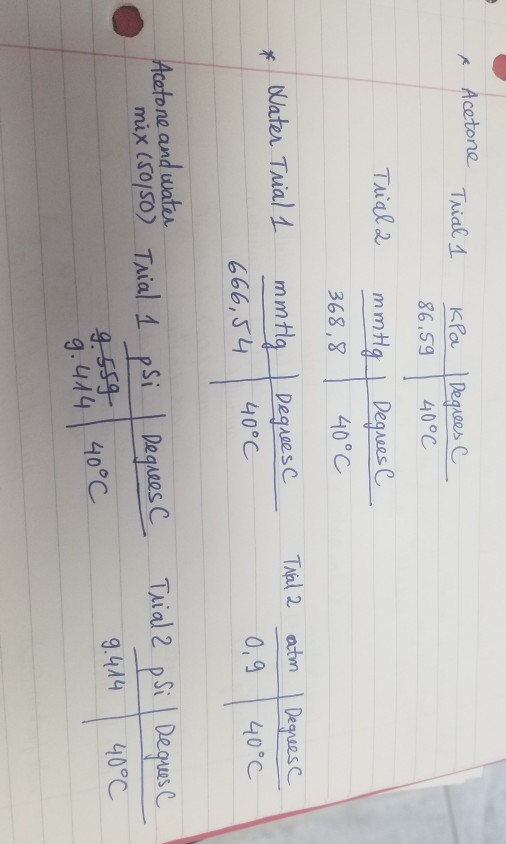 * Acetone Trial 1 KPa Degrees C
86,59 40°C
Trial 2 mmHg Degrees C
368,8 40°C
* Water Trial 1 mmHg Degrees C Trial 2 atm Degrees C
666,54 40°C 0,9 40°C
Acetone and water
mix (50/50) Trial 1 pSi Degrees C Trial 2 pSi Degrees C
9.559
9.414 40°C 9.414 40°C